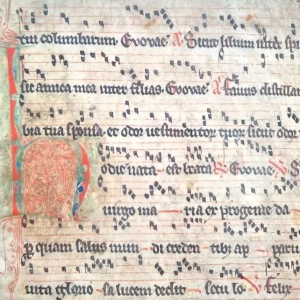 tui columbarum Evovae A Sicut lilium inter spi
sic amica mea inter filias Evovae A Favus distillans
bia tua sponsa et odor vestimentorum tuorum sicut odor
odie nata est beata Evovae
virgo maria ex progenie da
per quam salus mundi credentibus apparu
vita gloriosa lucem dedit seculo Felix